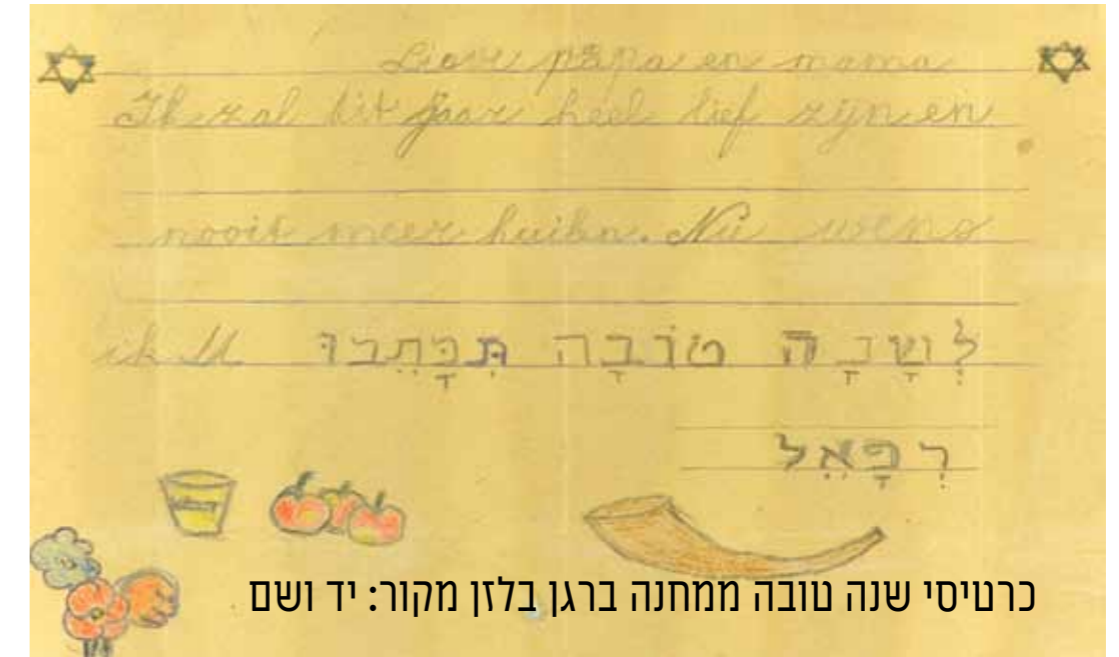 Lieve papa en mama
Ik zal dit jaar heel lief zijn en
nooit meer huilen. Nu wens
ik U לְשָׁנָה טוֹבָה תִּכָּתֵבוּ
רְפָאֵל
כרטיסי שנה טובה ממחנה ברגן בלזן מקור: יד ושם